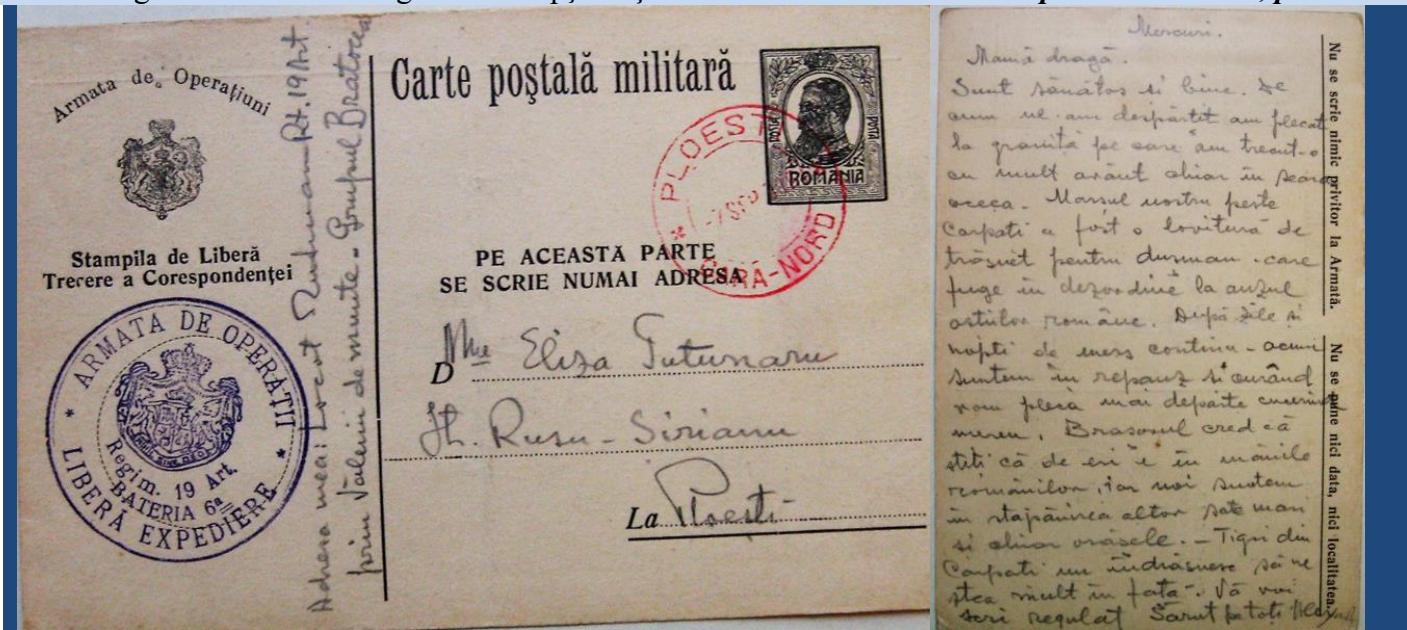 Armata de Operațiuni
Stampila de Liberă
Trecere a Corespondenței
ARMATA DE OPERAȚII
Regim. 19 Art.
BATERIA 6ª
LIBERĂ EXPEDIERE
Adresa mea: Locot Rt. 19 Art.
prin Vălenii de munte - Grupul Bratocea
Carte poştală militară
POSTA
ROMANIA
PLOESTI
GARA-NORD
PE ACEASTĂ PARTE
SE SCRIE NUMAI ADRESA
D Eliza Tutunaru
Rusu-Sirianu
La Ploesti
Mercuri.
Mamă dragă.
Sunt sănătos si bine. De
cum ne-am despărtit am plecat
la granită pe care am trecut-o
cu mult avânt chiar in seara
aceea. Marsul nostru peste
Carpati a fost o lovitură de
trăsnet pentru dusman care
fuge in dezordine la auzul
ostilor române. După zile si
nopti de mers continu - acum
suntem in repauz si curând
vom pleca mai departe
mereu. Brasovul cred că
stiti că de eri e in mânile
românilor, iar noi suntem
in stapânirea altor sate mari
si chiar orăsele. - Tigri din
Carpati nu indrăsnesc să ne
stea mult in fată. Vă voi
scri regulat Sărut pe toti
Nu se scrie nimic privitor la Armată.
Nu se pune nici data, nici localitatea.